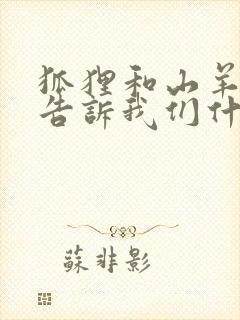 狐狸和山羊
告訴我们什
蘇非影